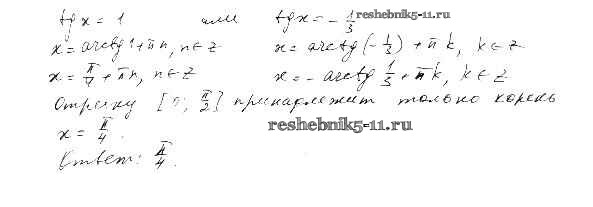 tg x = 1 или tg x = -1/3
reshebnik5-11.ru
x = arctg 1 + πn, n ∈ z x = arctg(-1/3) + πk, k ∈ z
x = π/4 + πn, n ∈ z x = -arctg 1/3 + πk, k ∈ z
Отрезку [0; π/2] принадлежит только корень
x = π/4.
reshebnik5-11.ru
Ответ: π/4.